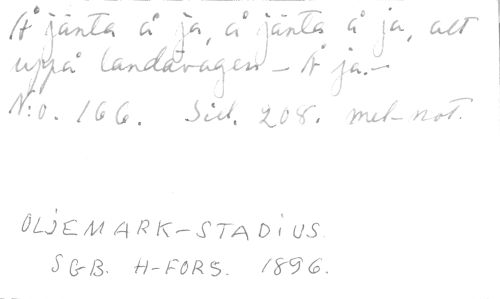 Å jänta å ja, å jänta å ja, allt
uppå landavägen - Å ja.-
N:o. 166. Sid. 208. mel-not.
OLJEMARK-STADIUS.
SGB. H-FORS. 1896.